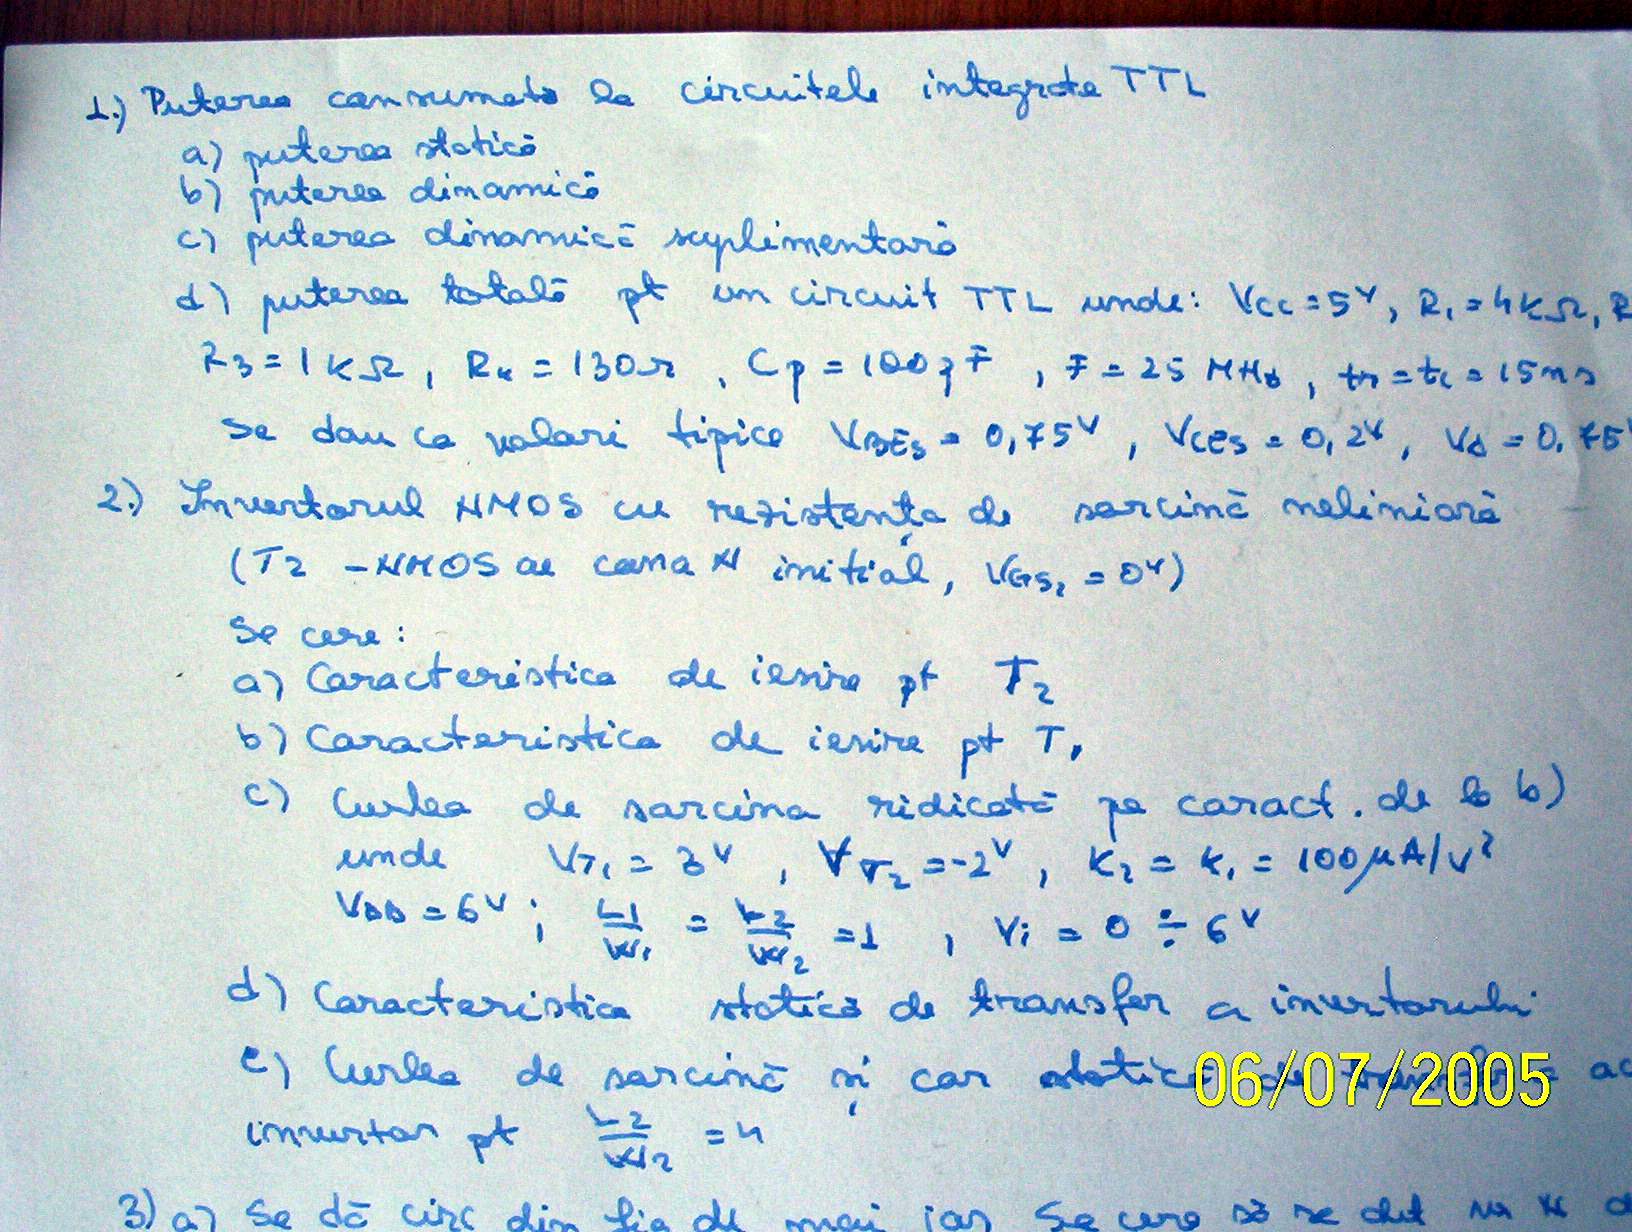 1.) Puterea consumată la circuitele integrate TTL
a) puterea statică
b) puterea dinamică
c) puterea dinamică suplimentară
d) puterea totală pt un circuit TTL unde: VCC = 5V, R1 = 4KΩ, R
R3 = 1KΩ, R4 = 130Ω, Cp = 100pF, F = 25 MHz, tr = tc = 15ns
Se dau ca valori tipice VBES = 0,75V, VCES = 0,2V, Vd = 0,75V
2.) Invertorul NMOS cu rezistența de sarcină neliniară
(T2 - NMOS cu cana N initial, VGS2 = 0V)
Se cere:
a) Caracteristica de iesire pt T2
b) Caracteristica de iesire pt T1
c) Curba de sarcina ridicată pe caract. de la b)
unde VT1 = 3V, VT2 = -2V, K2 = K1 = 100µA/V²
VDD = 6V; L1/W1 = L2/W2 = 1, Vi = 0 ÷ 6V
d) Caracteristica statică de transfer a invertorului
e) Curba de sarcină și car statică de
06/07/2005
invertor pt L2/W2 = 4
3) a) Se dă circ din fig de mai jos Se cere să se det